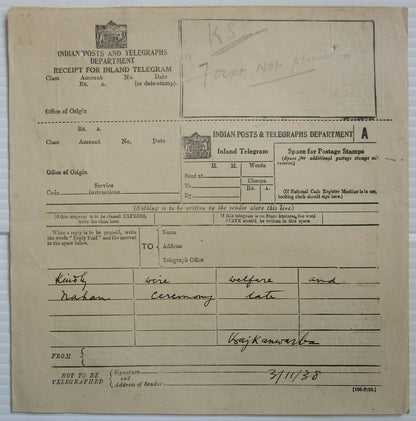 INDIAN POSTS AND TELEGRAPHS
DEPARTMENT
RECEIPT FOR INLAND TELEGRAM
Class Amount No. Date
Rs. A. (or date-stamp).
Office of Origin
KS
" Not please "
Rs. A.
Class Amount No. Date
Office of Origin
Service
Code instructions
INDIAN POSTS & TELEGRAPHS DEPARTMENT A
Inland Telegram
H. M. Words.
Sent at
To Charge.
By Rs. A.
Space for Postage Stamps
(Space for additional postage stamps on reverse)
(If National Cash Register Machine is in use, booking clerk should sign here.)
(Nothing is to be written by the sender above this line).
If this telegram is to be classed EXPRESS, write the class here.
If this telegram is on State business, the word STATE should be written in this space.
When a reply is to be prepaid, write the words "Reply Paid" and the amount in the space below.
TO
Name
Address
Telegraph Office
Kindly wire welfare and
Nahan Ceremony date
FROM
NOT TO BE TELEGRAPHED
Signature and Address of Sender
3/11/38